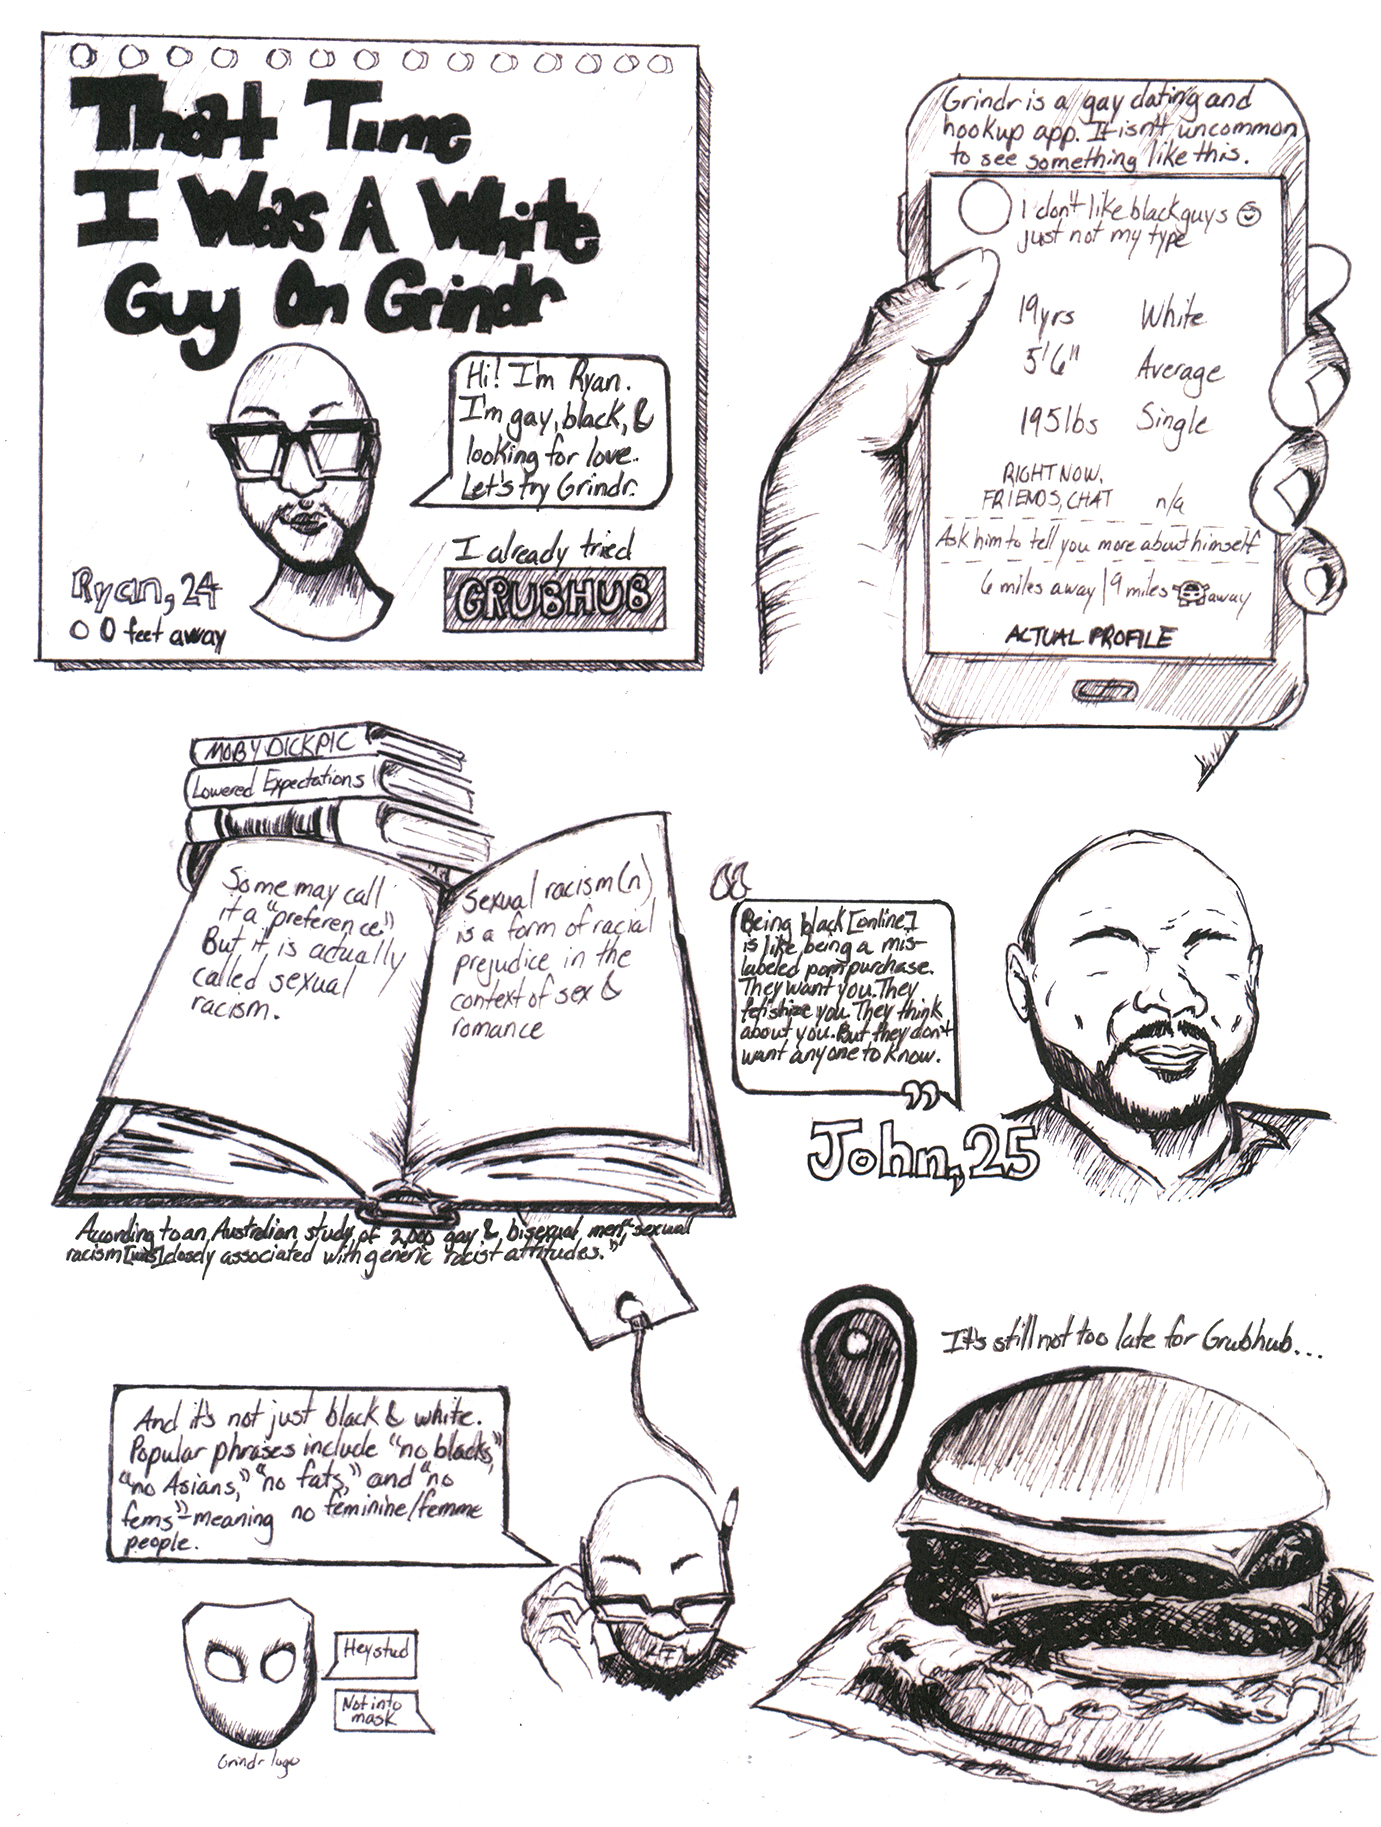 That Time
I Was A White
Guy On Grindr
Hi! I'm Ryan.
I'm gay, black, &
looking for love.
Let's try Grindr.
I already tried
GRUBHUB
Ryan, 24
0 feet away
Grindr is a gay dating and
hookup app. It isn't uncommon
to see something like this.
I don't like black guys
just not my type
19yrs White
5'6" Average
195lbs Single
RIGHT NOW,
FRIENDS, CHAT n/a
Ask him to tell you more about himself
6 miles away | 9 miles away
ACTUAL PROFILE
MOBY DICKPIC
Lowered Expectations
Some may call
it a "preference."
But it is actually
called sexual
racism.
sexual racism (n)
is a form of racial
prejudice in the
context of sex &
romance
According to an Australian study of 2,000 gay & bisexual men, "sexual
racism [was] closely associated with generic racist attitudes."
"
Being black [online]
is like being a mis-
labeled porn purchase.
They want you. They
fetishize you. They think
about you. But they don't
want anyone to know.
"
John, 25
And it's not just black & white.
Popular phrases include "no blacks,"
"no Asians," "no fats," and "no
fems"-meaning no feminine/femme
people.
Hey stud
Not into
mask
Grindr logo
It's still not too late for Grubhub...